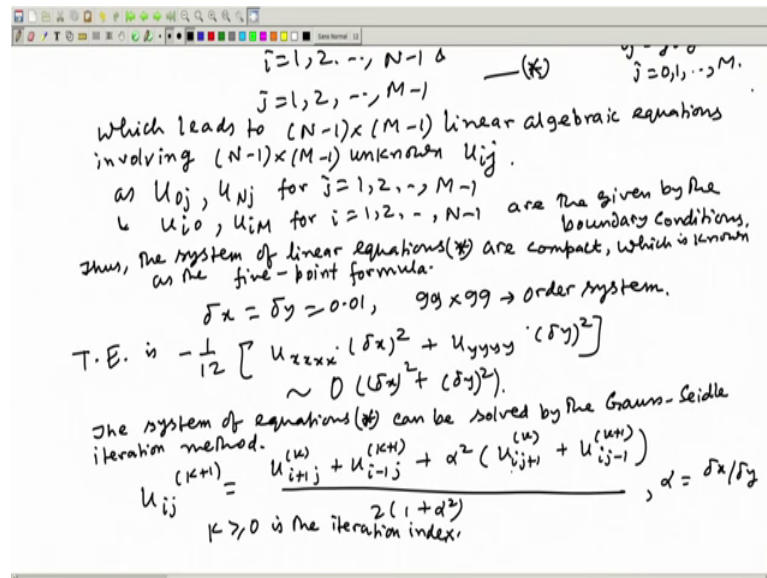 i=1,2. --, N-1 &
j=1,2, --, M-1 —(*) j=0,1,--,M.
which leads to (N-1)×(M-1) linear algebraic equations
involving (N-1)×(M-1) unknown u_ij.
as u_0j, u_Nj for j=1,2,-, M-1
& u_i0, u_iM for i=1,2,-, N-1 are the given by the boundary conditions.
Thus, the system of linear equations(*) are compact, which is known
as the five-point formula.
δx = δy = 0.01, 99×99 → order system.
T.E. is -1/12 [u_xxxx·(δx)^2 + u_yyyy·(δy)^2]
~ O((δx)^2 + (δy)^2).
The system of equations(*) can be solved by the Gauss-Seidle
iteration method.
u_ij^(k+1) = (u_i+1j^(k) + u_i-1j^(k+1) + α^2(u_ij+1^(k) + u_ij-1^(k+1))) / 2(1+α^2), α = δx/δy
k≥0 is the iteration index.